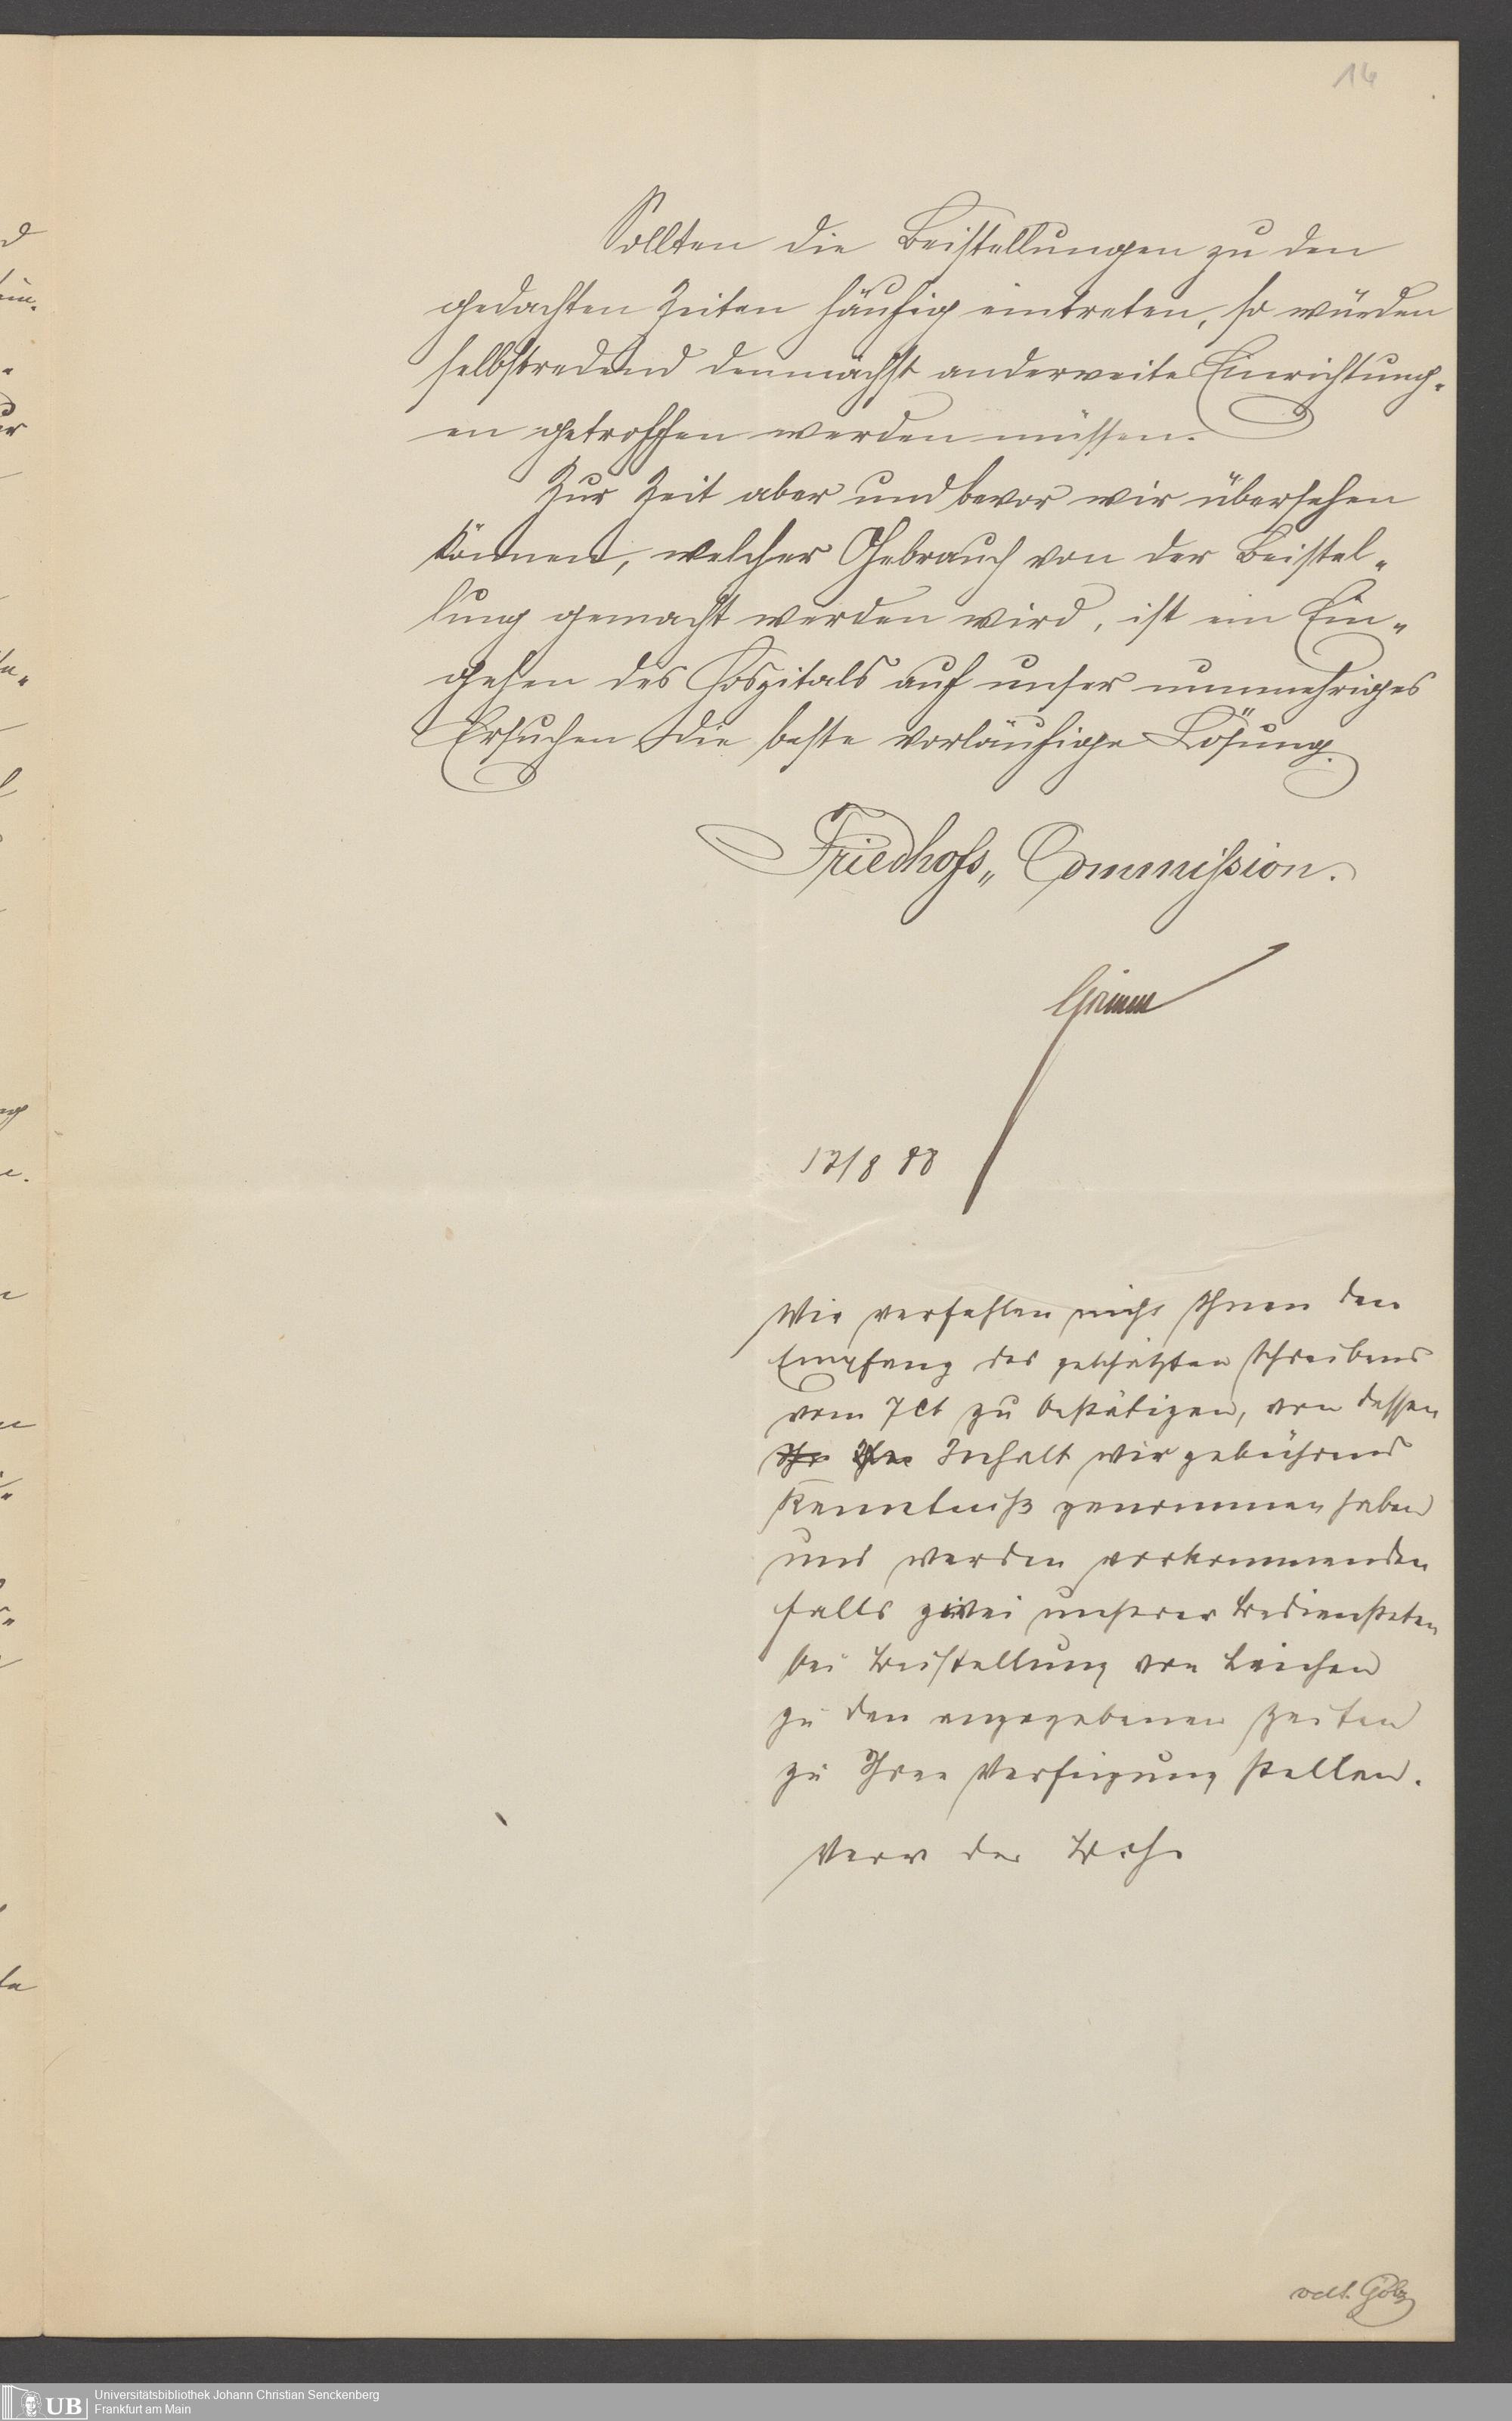 14
Sollten die Beistellungen zu den
gedachten Zeiten häufig eintreten, so würden
selbstredend demnächst anderweite Einrichtung-
en getroffen werden müssen.
Zur Zeit aber und bevor wir übersehen
können, welcher Gebrauch von der Beistel-
lung gemacht werden wird, ist ein Ein-
gehen des Hospitals auf unser nunmehriges
Ersuchen die beste vorläufige Lösung.
Friedhofs„ Commission.
Grimm
17/8 88
Wir verfehlen nicht Ihnen den
Empfang des geschätzten Schreibens
vom 7 ct zu bestätigen, von dessen
Inhalt wir gebührend
Kenntniß genommen haben
und werden vorkommenden
falls zwei unserer Bediensteten
bei Beistellung von Leichen
zu den angegebenen Zeiten
zu Ihrer Verfügung stellen.
Verw der
vdt. Gölz
Universitätsbibliothek Johann Christian Senckenberg
Frankfurt am Main
UB